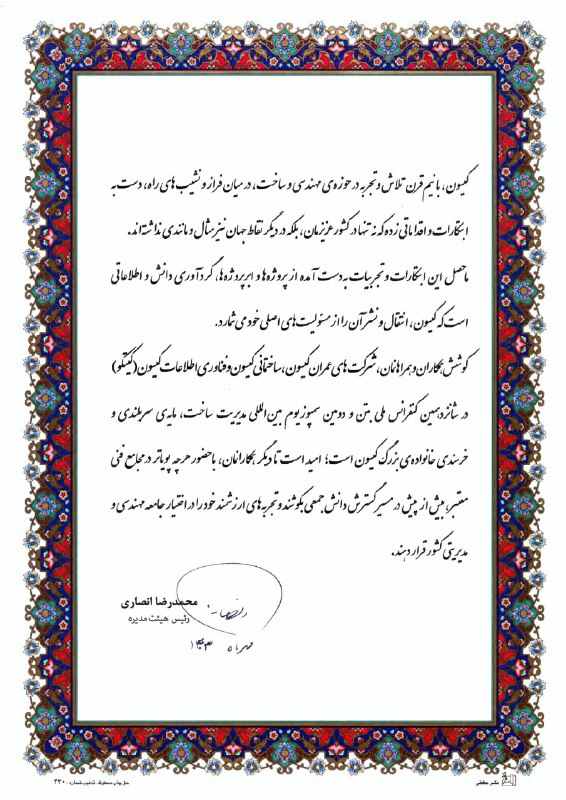 کیسون، با نیم قرن تلاش و تجربه در حوزه‌ی مهندسی و ساخت، در میان فراز و نشیب‌های راه، دست به
ابتکارات و اقداماتی زده که نه تنها در کشور عزیزمان، بلکه در دیگر نقاط جهان نیز مثال و مانندی نداشته‌اند.
ماحصل این ابتکارات و تجربیات به‌دست آمده از پروژه‌ها و ابرپروژه‌ها، گردآوری دانش و اطلاعاتی
است که کیسون، انتقال و نشر آن را از مسئولیت‌های اصلی خود می‌شمارد.
کوشش همکاران و همراهانمان، شرکت‌های عمران کیسون، ساختمانی کیسون و فناوری اطلاعات کیسون (کیسیکو)
در شانزدهمین کنفرانس ملی بتن و دومین سمپوزیوم بین‌المللی مدیریت ساخت، مایه‌ی سربلندی و
خرسندی خانواده‌ی بزرگ کیسون است؛ امید است تا دیگر همکارانمان، با حضور هرچه پویاتر در مجامع فنی
معتبر، بیش از پیش در مسیر گسترش دانش جمعی بکوشند و تجربه‌های ارزشمند خود را در اختیار جامعه مهندسی و
مدیریتی کشور قرار دهند.
محمدرضا انصاری
رئیس هیئت مدیره
مهر ماه ۱۴۰۳
نشر حافظی
حق چاپ محفوظ تذهیب شماره: ۳۳۰